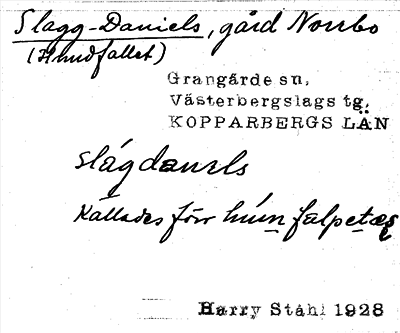 Slagg-Daniels, gård Norrbo
(Hundfallet)
Grangärde sn.
Västerbergslags tg.
KOPPARBERGS LÄN
slágdanɛls
Kallades förr
Harry Ståhl 1928